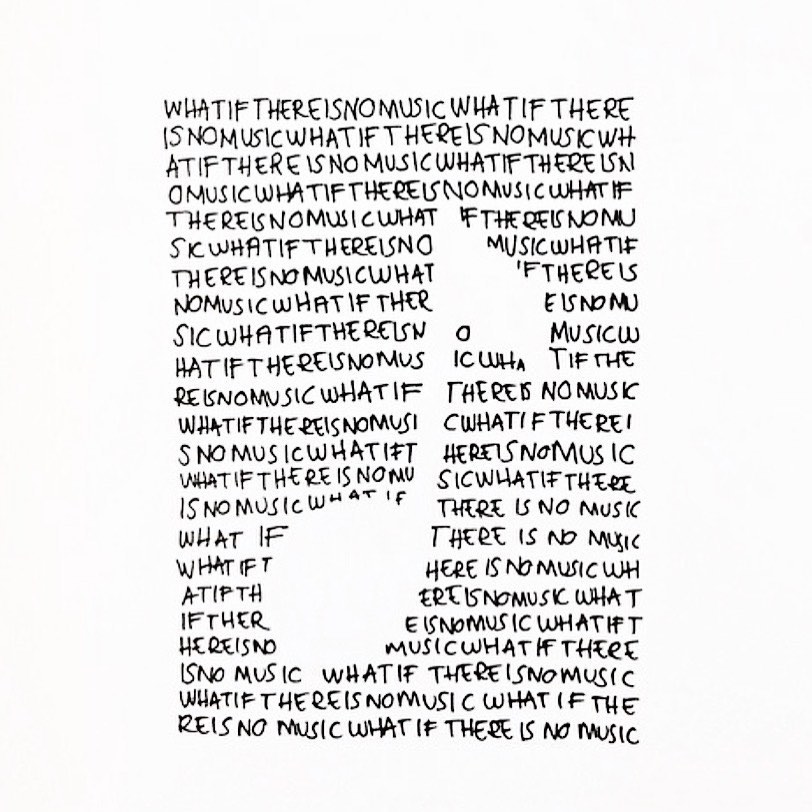 WHATIFTHEREISNOMUSICWHATIFTHERE
ISNOMUSICWHATIFTHEREISNOMUSICWH
ATIFTHEREISNOMUSICWHATIFTHEREISN
OMUSICWHATIFTHEREISNOMUSICWHATIF
THEREISNOMUSICWHAT IFTHEREISNOMU
SICWHATIFTHEREISNO MUSICWHATIF
THEREISNOMUSICWHAT IFTHEREIS
NOMUSICWHATIFTHER EISNOMU
SICWHATIFTHEREISN O MUSICW
HATIFTHEREISNOMUS ICWHA TIFTHE
REISNOMUSICWHATIF THEREIS NOMUSIC
WHATIFTHEREISNOMUSI CWHATIFTHEREI
SNOMUSICWHATIFT HEREISNOMUSIC
WHATIFTHEREISNOMU SICWHATIFTHERE
ISNOMUSICWHATIF THERE IS NO MUSIC
WHAT IF THERE IS NO MUSIC
WHATIFT HERE IS NOMUSICWH
ATIFTH EREISNOMUSICWHAT
IFTHER EISNOMUSICWHATIFT
HEREISNO MUSICWHATIFTHERE
ISNO MUSIC WHATIF THEREISNOMUSIC
WHATIFTHEREISNOMUSIC WHAT IF THE
REISNO MUSICWHATIF THERE IS NO MUSIC